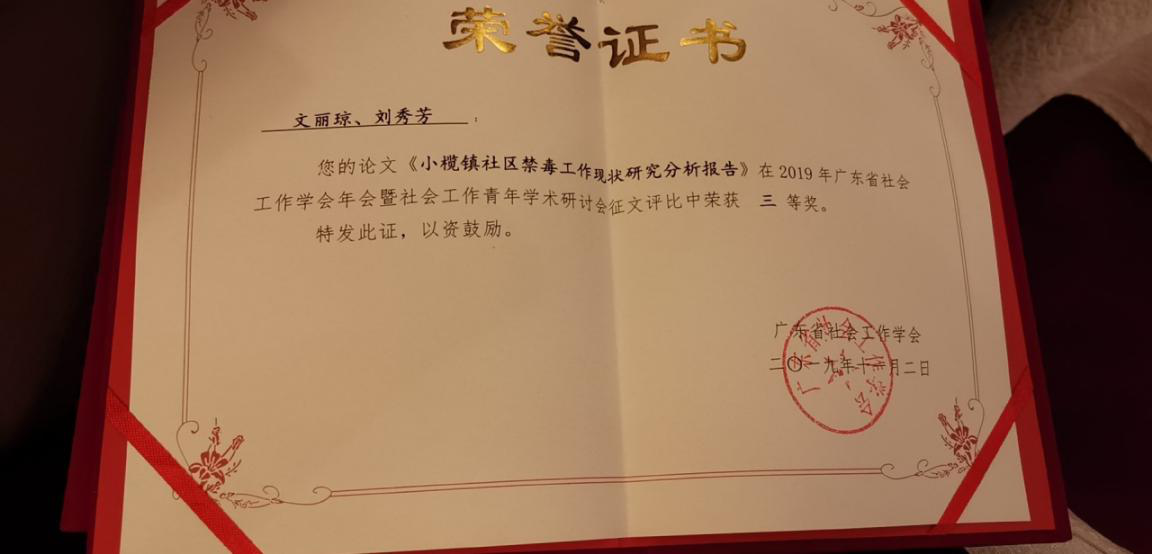 荣誉证书
文丽琼、刘秀芳：
您的论文《小榄镇社区禁毒工作现状研究分析报告》在2019年广东省社会
工作学会年会暨社会工作青年学术研讨会征文评比中荣获 三 等奖。
特发此证，以资鼓励。
广东省社会工作学会
二〇一九年十一月二日
广东省社会工作学会